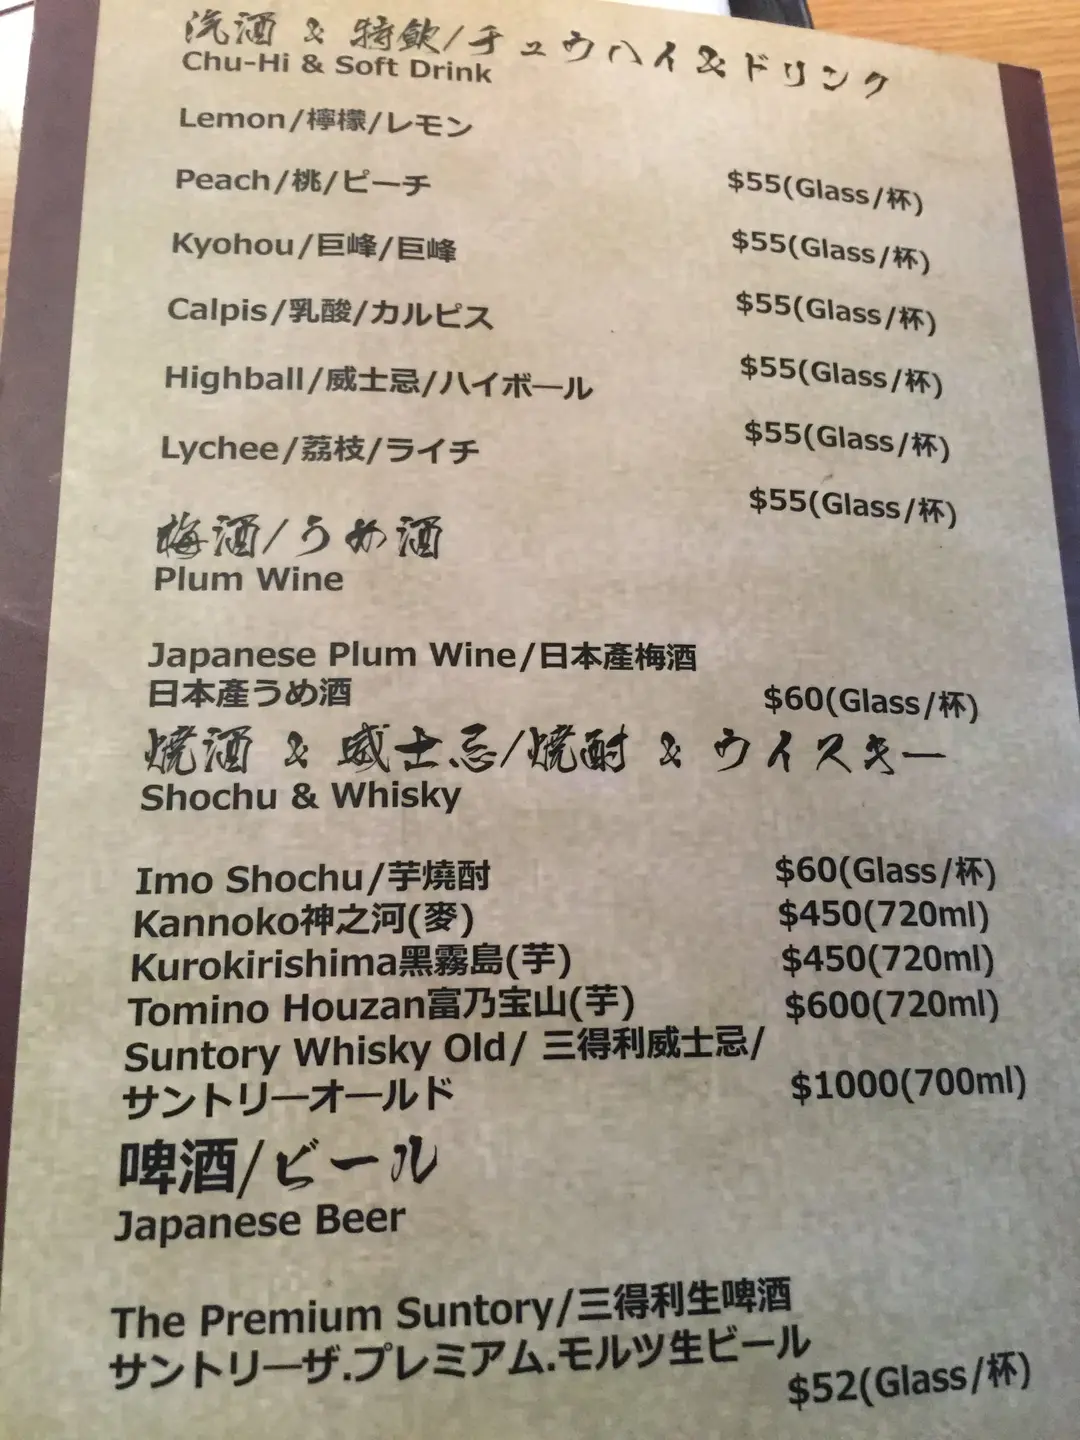 汽酒 & 特飲/チュウハイ&ドリンク
Chu-Hi & Soft Drink
Lemon/檸檬/レモン
$55(Glass/杯)
Peach/桃/ピーチ
$55(Glass/杯)
Kyohou/巨峰/巨峰
$55(Glass/杯)
Calpis/乳酸/カルピス
$55(Glass/杯)
Highball/威士忌/ハイボール
$55(Glass/杯)
Lychee/荔枝/ライチ
$55(Glass/杯)
梅酒/うめ酒
Plum Wine
Japanese Plum Wine/日本產梅酒
日本產うめ酒 $60(Glass/杯)
燒酒 & 威士忌/焼酎 & ウイスキー
Shochu & Whisky
Imo Shochu/芋燒酎 $60(Glass/杯)
Kannoko神之河(麥) $450(720ml)
Kurokirishima黑霧島(芋) $450(720ml)
Tomino Houzan富乃宝山(芋) $600(720ml)
Suntory Whisky Old/ 三得利威士忌/
サントリーオールド $1000(700ml)
啤酒/ビール
Japanese Beer
The Premium Suntory/三得利生啤酒
サントリーザ.プレミアム.モルツ生ビール
$52(Glass/杯)